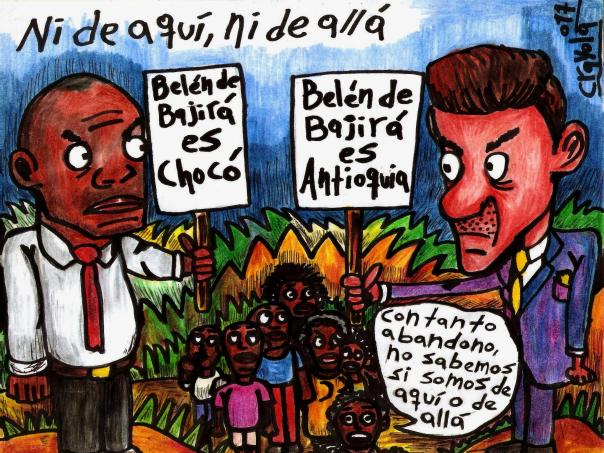 Ni de aquí, ni de allá
Belén de
Bajirá
es
Chocó
Belén de
Bajirá
es
Antioquia
Con tanto
abandono,
no sabemos
si somos de
aquí o de
allá
017